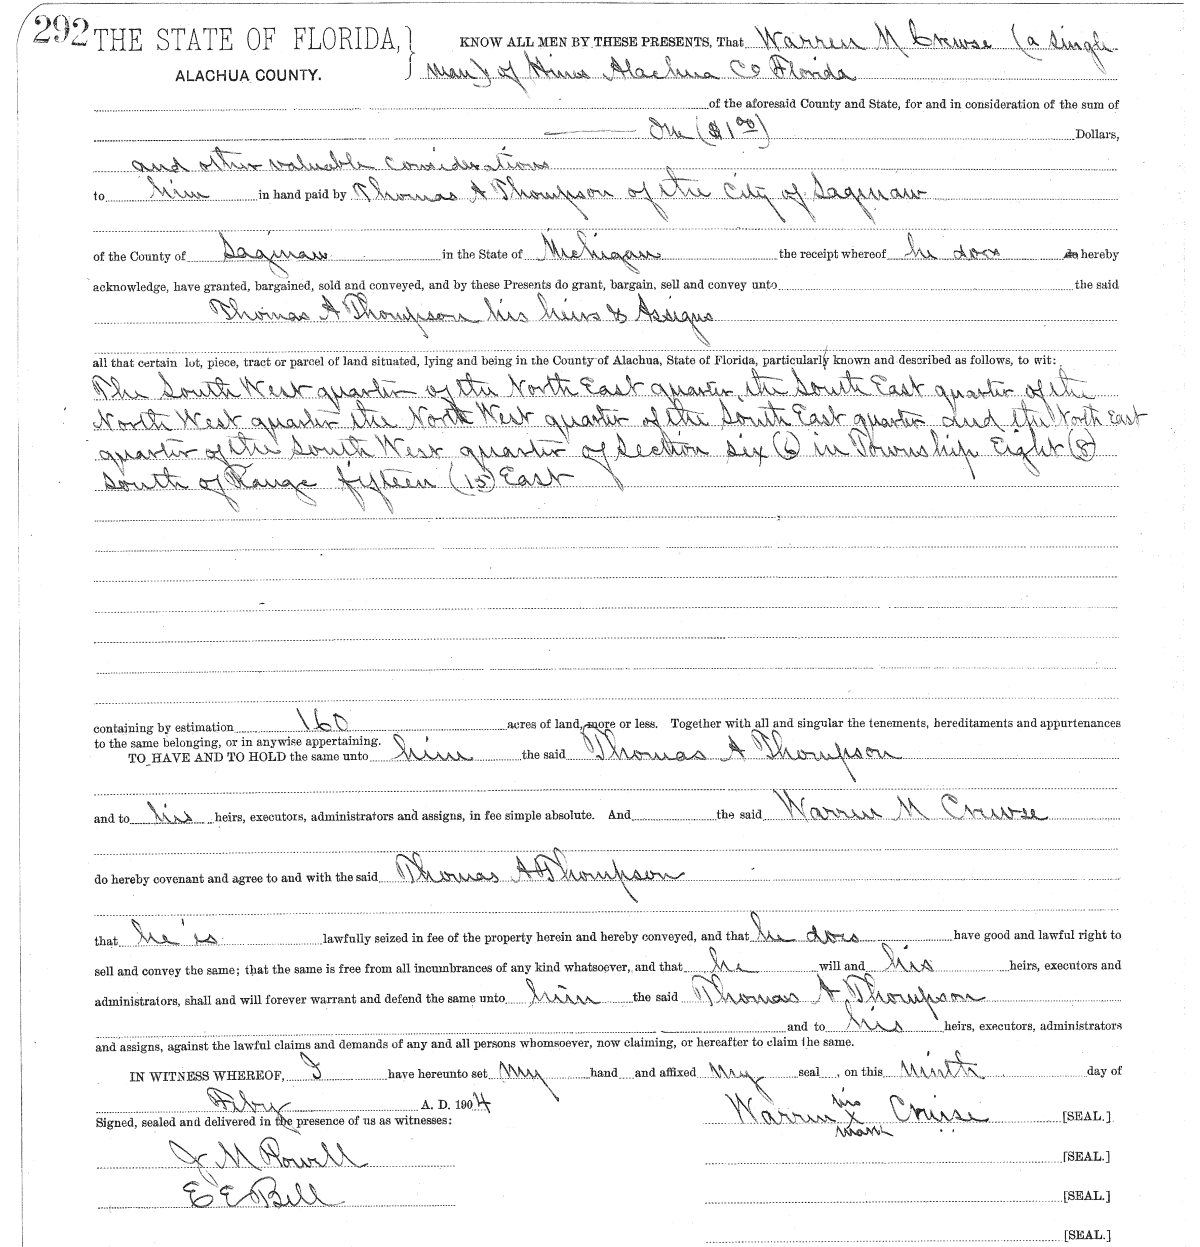 292 THE STATE OF FLORIDA, KNOW ALL MEN BY THESE PRESENTS, That Warren M Crewse (a single
ALACHUA COUNTY. man) of Hines Alachua Co Florida
of the aforesaid County and State, for and in consideration of the sum of
One ($1 00) Dollars,
and other valuable Considerations
to him in hand paid by Thomas A Thompson of the City of Saginaw
of the County of Saginaw in the State of Michigan the receipt whereof he does do hereby
acknowledge, have granted, bargained, sold and conveyed, and by these Presents do grant, bargain, sell and convey unto the said
Thomas A Thompson his heirs & Assigns
all that certain lot, piece, tract or parcel of land situated, lying and being in the County of Alachua, State of Florida, particularly known and described as follows, to wit:
The South West quarter of the North East quarter, the South East quarter of the
North West quarter the North West quarter of the South East quarter and the North East
quarter of the South West quarter of Section six (6) in Township Eight (8)
South of Range fifteen (15) East
containing by estimation 160 acres of land, more or less. Together with all and singular the tenements, hereditaments and appurtenances
to the same belonging, or in anywise appertaining.
TO HAVE AND TO HOLD the same unto him the said Thomas A Thompson
and to his heirs, executors, administrators and assigns, in fee simple absolute. And the said Warren M Crewse
do hereby covenant and agree to and with the said Thomas A Thompson
that he is lawfully seized in fee of the property herein and hereby conveyed, and that he does have good and lawful right to
sell and convey the same; that the same is free from all incumbrances of any kind whatsoever, and that he will and his heirs, executors and
administrators, shall and will forever warrant and defend the same unto him the said Thomas A. Thompson
and to his heirs, executors, administrators
and assigns, against the lawful claims and demands of any and all persons whomsoever, now claiming, or hereafter to claim the same.
IN WITNESS WHEREOF, I have hereunto set My hand and affixed My seal, on this Ninth day of
Feby A. D. 1904
Signed, sealed and delivered in the presence of us as witnesses: Warren his x mark Cruise [SEAL.]
J M Powell [SEAL.]
E E Bell [SEAL.]
[SEAL.]